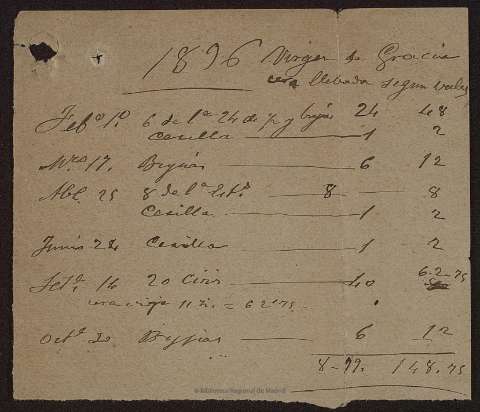 1896 Virgen de Gracia
cera llebada segun vales
Feb.º 1.º 6 de 1.ª 24 de ½ y bujías 24 48
Cerilla 1 2
Mzo 17. Bujías 6 12
Abl. 25 8 de 1.ª 8 8
Cerilla 1 2
Junio 24 Cerilla 1 2
Set.e 14 20 Ciris 40 62-75
cera vieja 11 = 62'75
Oct.e 20 Bujías 6 12
8-99. 148.75
©Biblioteca Regional de Madrid